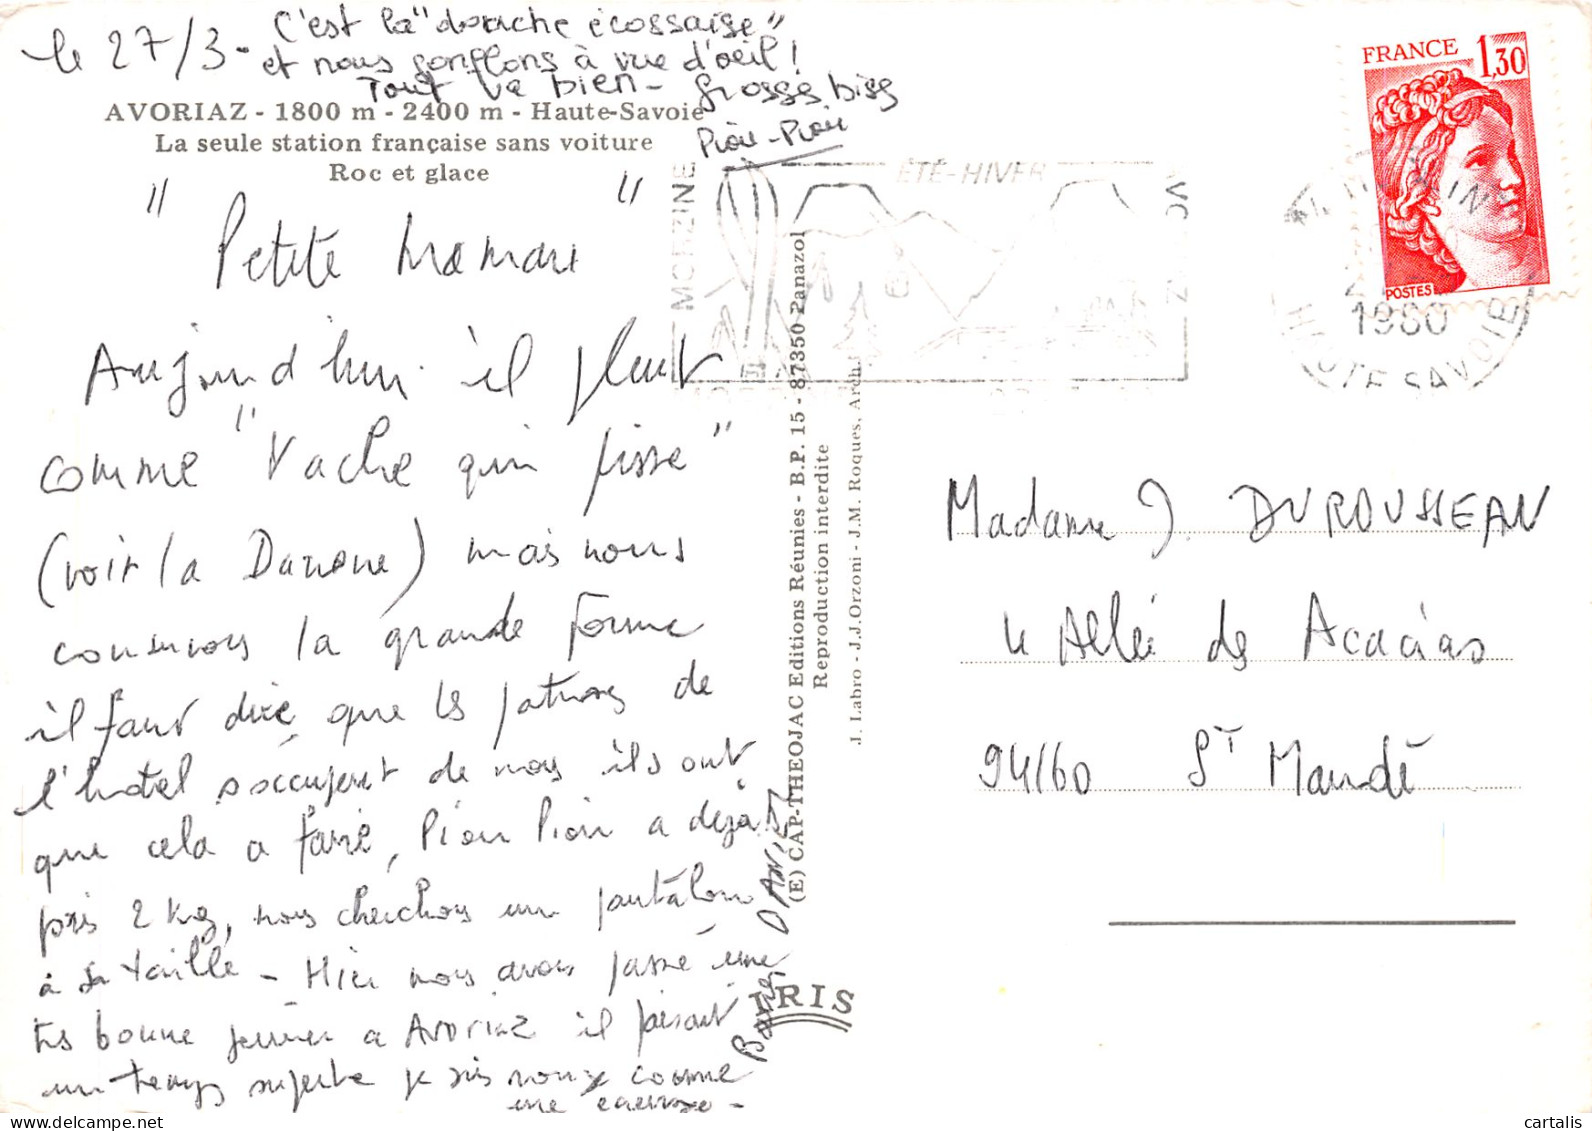 le 27/3 - C'est la "douche écossaise"
et nous gonflons à vue d'oeil!
Tout va bien - Grosses bises
Piou-Piou
AVORIAZ - 1800 m - 2400 m - Haute-Savoie
La seule station française sans voiture
Roc et glace
"Petite Maman"
Aujourd'hui il pleut
comme "Vache qui pisse"
(voir la Danone) mais nous
conservons la grande forme
il faut dire que les patrons de
l'hotel s'occupent de nous ils ont
que cela a faire, Piou Piou a dejà
pris 2 kg, nous cherchons un pantalon
à sa taille - Hier nous avons passé une
tes bonne journee a Avoriaz il faisait
un temps superbe je suis rouge comme
une écrevisse -
Baises DANIEL
FRANCE 1,30
POSTES
MORZINE
ÉTÉ-HIVER
1980
HAUTE-SAVOIE
(E) CAP-THEOJAC Editions Réunies - B.P. 15 - 87350 Panazol
Reproduction interdite
J. Labro - J.J. Orzoni - J.M. Roques, Arch.
IRIS
Madame J. DUROUSSEAU
4 Allée des Acacias
94160 St Mandé
delcampe.net
cartalis